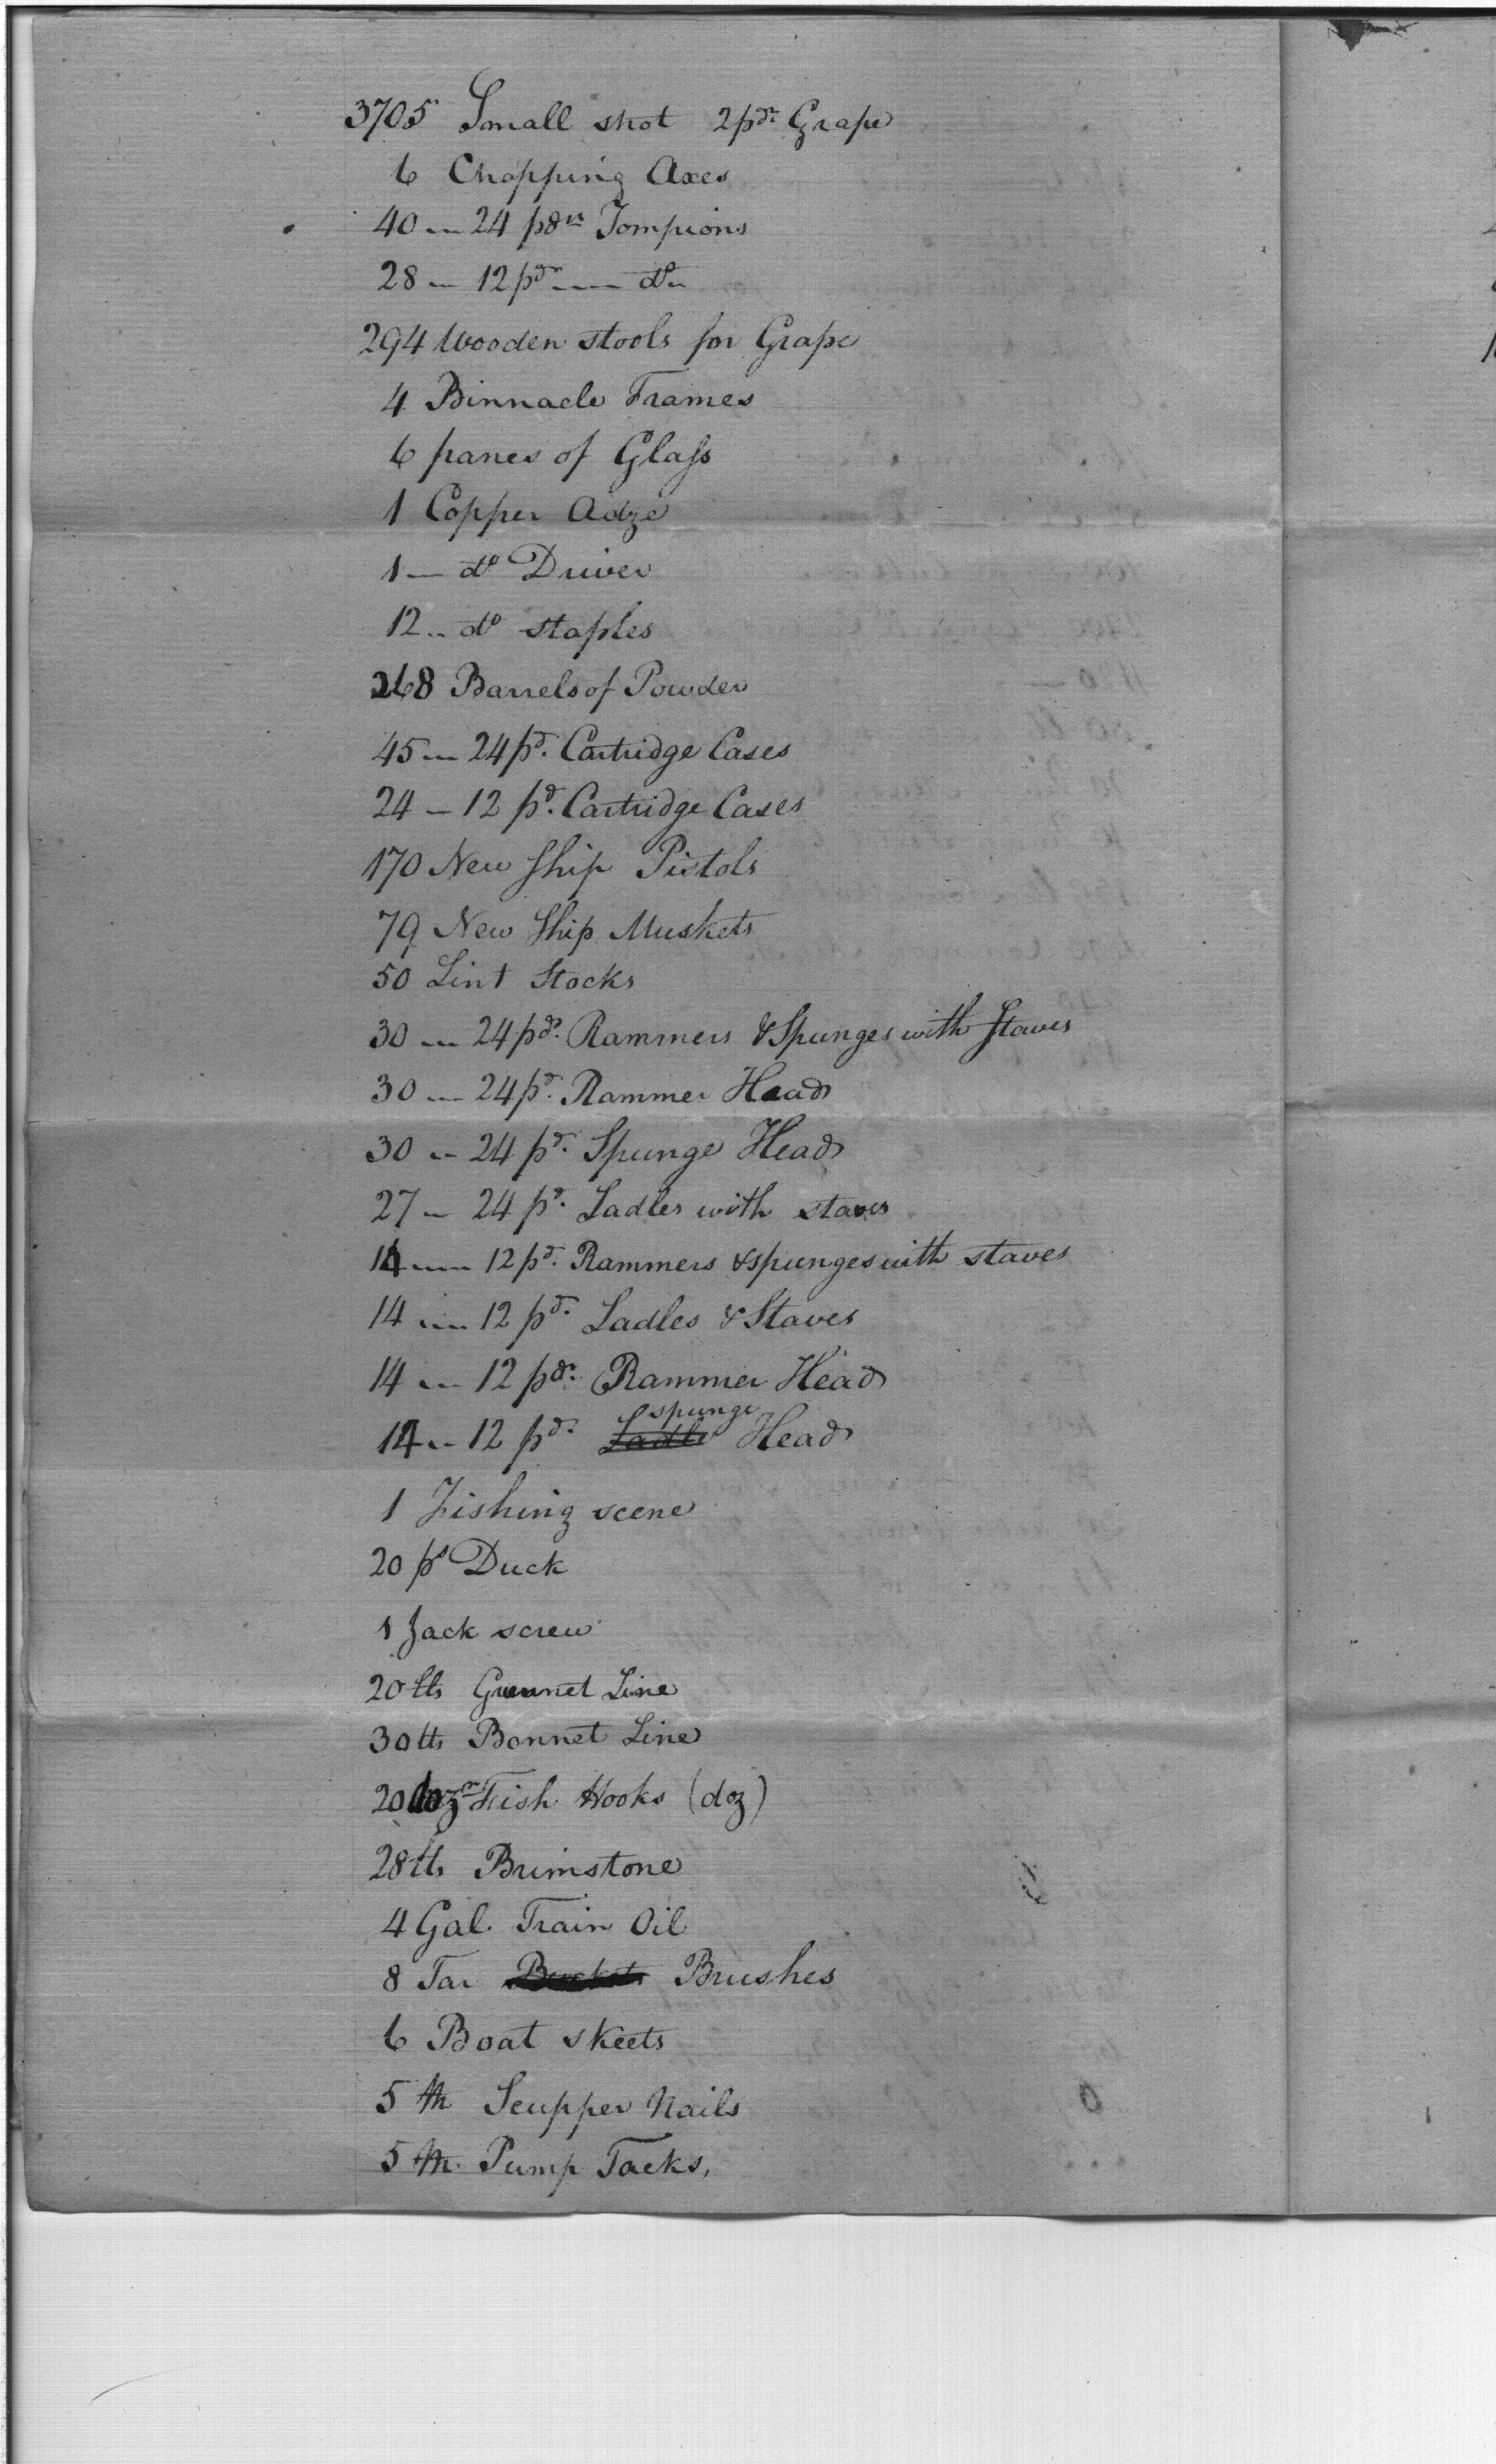 3705 Small shot 2pdr Grape
6 Chopping Axes
40 — 24 pdrs Tompions
28 — 12pdr —— do
294 Wooden stools for Grape
4 Binnacle Frames
6 panes of Glass
1 Copper Adze
1 — do Driver
12 .. do staples
268 Barrels of Powder
45 — 24pd. Cartridge Cases
24 — 12 pd. Cartridge Cases
170 New Ship Pistols
79 New Ship Muskets
50 Lint Stocks
30 — 24pdr. Rammers & Spunges with Staves
30 — 24pd. Rammer Heads
30 — 24 pd. Spunge Heads
27 — 24 pd. Ladles with staves
14 — 12pd. Rammers & spunges with staves
14 — 12 pd. Ladles & Staves
14 — 12 pdr. Rammer Heads
spunge
14 — 12 pdr Ladle Heads
1 Fishing scene
20 ps Duck
1 Jack screw
20 lbs Line
30 lbs Bonnet Line
20 Fish Hooks (doz)
28 lbs Brimstone
4 Gal. Train Oil
8 Tar Buckets Brushes
6 Boat skeets
5 m Scupper Nails
5 m. Pump Tacks,